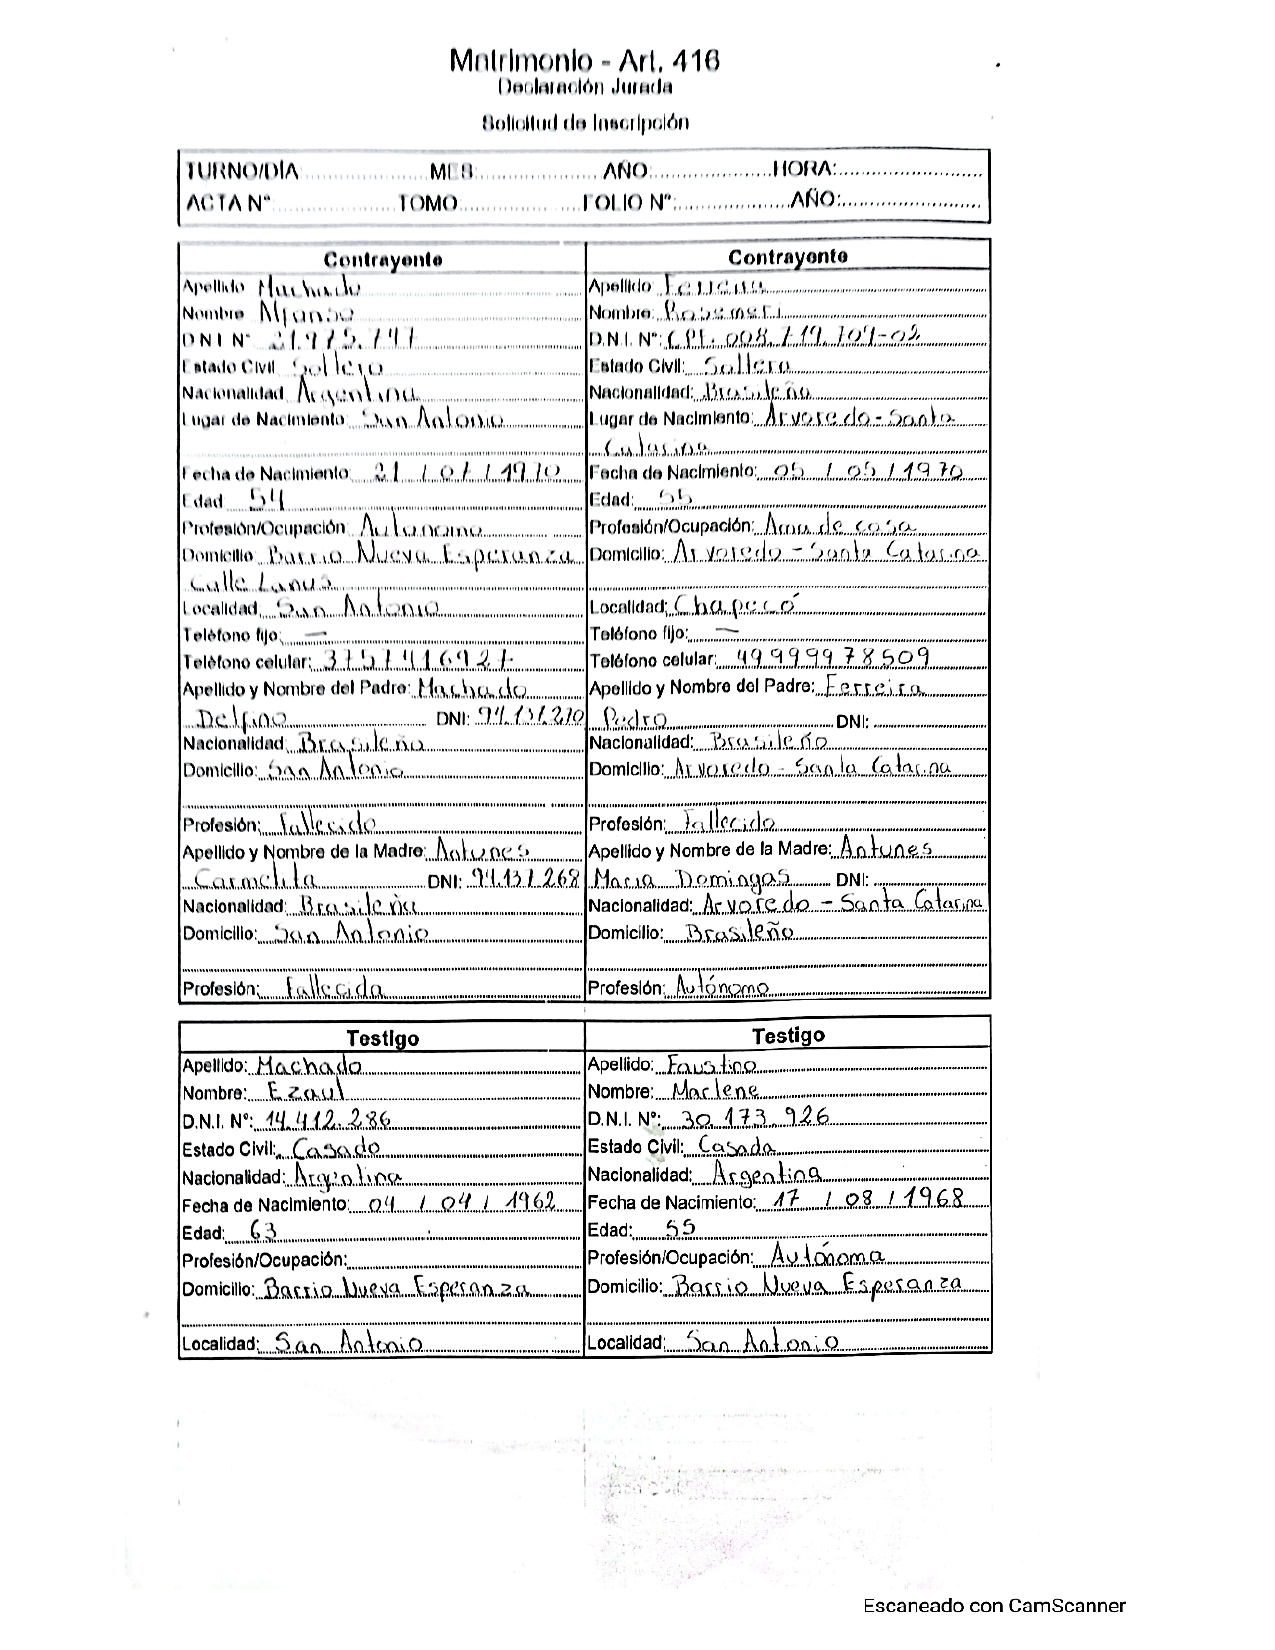 Matrimonio - Art. 416
Declaración Jurada
Solicitud de Inscripción
TURNO/DÍA MES AÑO HORA:
ACTA N° TOMO FOLIO N°: AÑO:
Contrayente
Apellido Machado
Nombre
D N I N°
Estado Civil Soltero
Nacionalidad Argentina
Lugar de Nacimiento San Antonio
Fecha de Nacimiento: 21 / 01 / 1970
Edad 54
Profesión/Ocupación Autonomo
Domicilio Barrio Nueva Esperanza
Calle Lanus
Localidad San Antonio
Teléfono fijo: —
Teléfono celular:
Apellido y Nombre del Padre: Machado
Delfino DNI: 94.131.270
Nacionalidad: Brasileño
Domicilio: San Antonio
Profesión: Fallecido
Apellido y Nombre de la Madre: Antunes
Carmelita DNI: 94.131.268
Nacionalidad: Brasileña
Domicilio: San Antonio
Profesión: Fallecida
Contrayente
Apellido Ferreira
Nombre: Rosemeri
D.N.I. N°:
Estado Civil: Soltera
Nacionalidad: Brasileña
Lugar de Nacimiento: Arvoredo - Santa
Catarina
Fecha de Nacimiento: 05 / 05 / 1970
Edad: 55
Profesión/Ocupación: Ama de casa
Domicilio: Arvoredo - Santa Catarina
Localidad: Chapecó
Teléfono fijo: —
Teléfono celular: 49 999978509
Apellido y Nombre del Padre: Ferreira
Pedro DNI:
Nacionalidad: Brasileño
Domicilio: Arvoredo - Santa Catarina
Profesión: Fallecido
Apellido y Nombre de la Madre: Antunes
Maria Domingas DNI:
Nacionalidad: Arvoredo - Santa Catarina
Domicilio: Brasileño
Profesión: Autónomo
Testigo
Apellido: Machado
Nombre: Ezaul
D.N.I. N°: 14.412.286
Estado Civil: Casado
Nacionalidad: Argentina
Fecha de Nacimiento: 04 / 04 / 1962
Edad: 63
Profesión/Ocupación:
Domicilio: Barrio Nueva Esperanza
Localidad: San Antonio
Testigo
Apellido: Faustino
Nombre: Marlene
D.N.I. N°: 30.173.926
Estado Civil: Casada
Nacionalidad: Argentina
Fecha de Nacimiento: 17 / 08 / 1968
Edad: 55
Profesión/Ocupación: Autónoma
Domicilio: Barrio Nueva Esperanza
Localidad: San Antonio
Escaneado con CamScanner